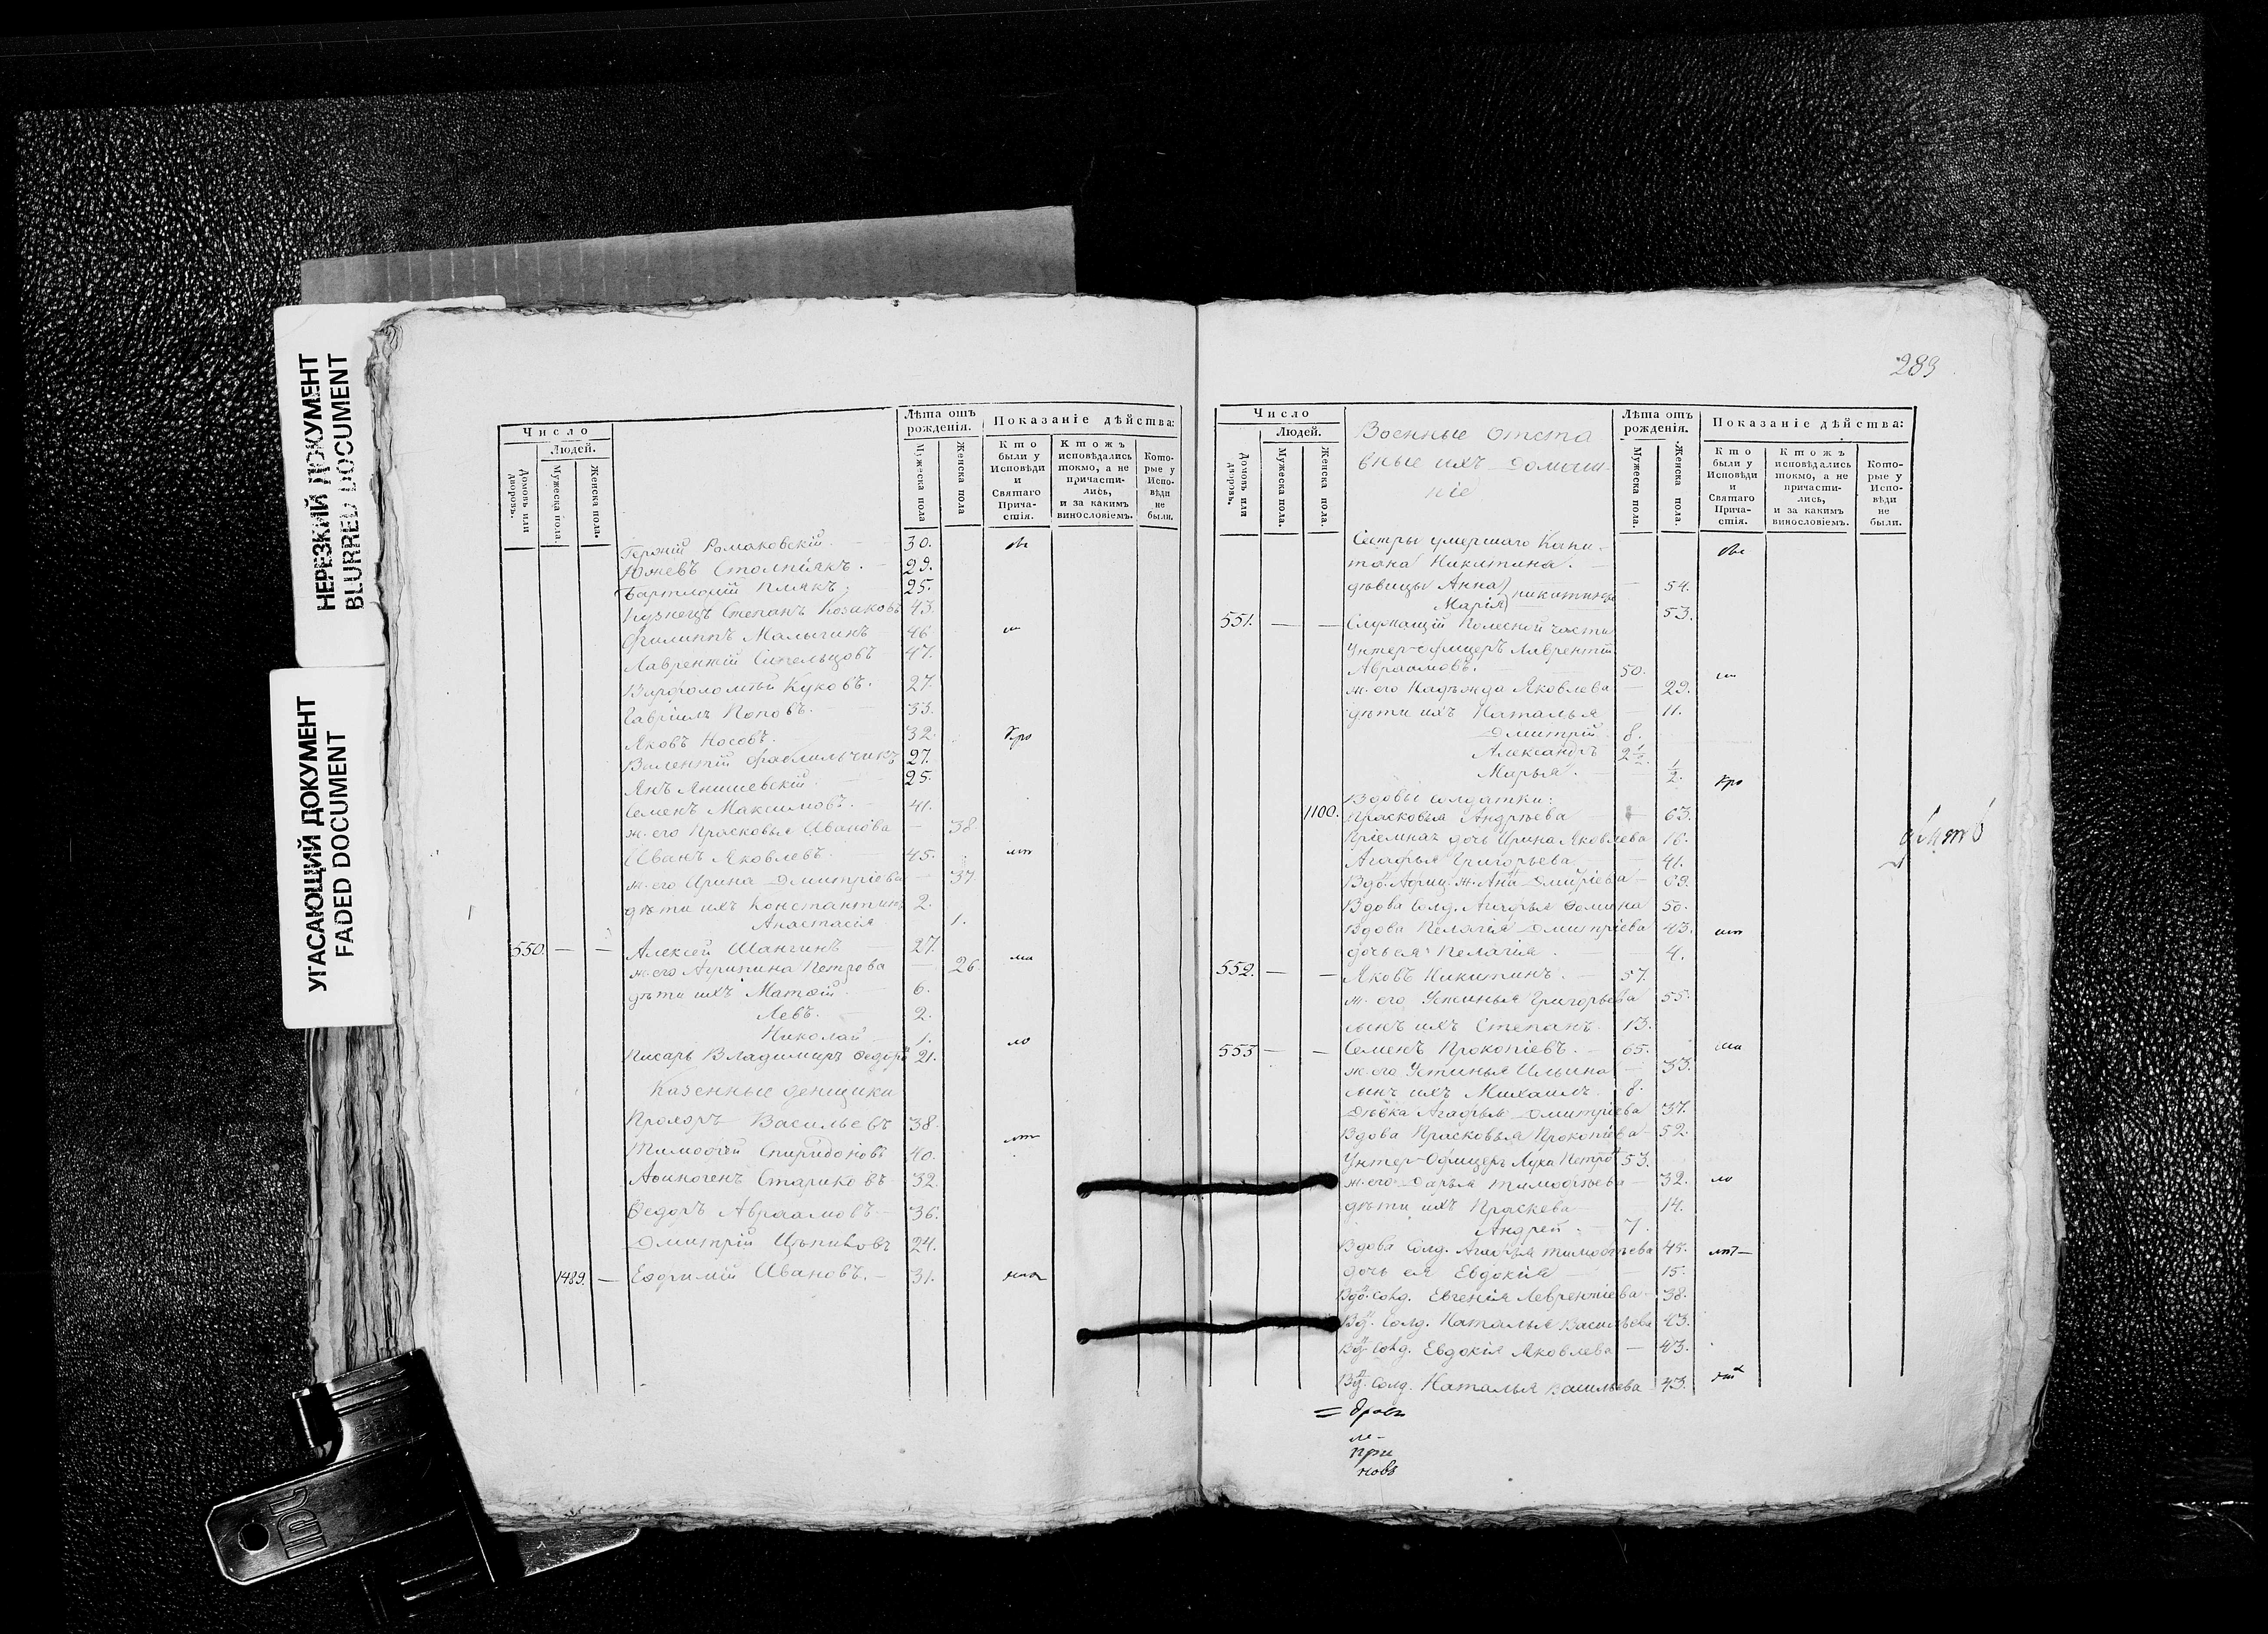 НЕРЕЗКИЙ ДОКУМЕНТ
BLURRED DOCUMENT
УГАСАЮЩИЙ ДОКУМЕНТ
FADED DOCUMENT
Число
Людей.
Домовъ или дворовъ.
Мужеска пола.
Женска пола.
Лѣта отъ рожденія.
Мужеска пола
Женска пола
Показаніе дѣйства:
Кто были у Исповѣди и Святаго Причастія.
Ктожъ исповѣдались токмо, а не причастились, и за какимъ винословіемъ.
Которые у Исповѣди не были.
Ромаковскій 30.
Столпякъ. 29.
Плякъ. 25.
Кузнецъ Степанъ Козаковъ 43.
Филиппъ Малыгинъ 46
Лаврентій 47.
Варфоломей Куковъ. 27.
Гавріилъ Поповъ. 33.
Яковъ Носовъ. 32.
Валентій 27.
Янъ Янишевскій. 25.
Семенъ Максимовъ. 41.
ж. его Прасковья Иванова — 38.
Иванъ Яковлевъ. 45.
ж. его Ирина Дмитріева — 37
дѣти ихъ Константинъ 2.
Анастасія 1.
550. — — Алексей Шангинъ 27.
ж. его Агрипина Петрова — 26
дѣти ихъ Матѳій. 6.
Левъ. 2.
Николай 1.
Писарь Владимиръ 21.
Казенные денщики
Прохоръ Васильевъ 38.
Тимоѳей Спиридоновъ 40.
Аѳиногенъ Стариковъ 32
Ѳедоръ Авраамовъ. 36.
Дмитрій 24.
1489. — Ефимій Ивановъ. 31.
289
Число
Людей.
Домовъ или дворовъ.
Мужеска пола.
Женска пола.
Военные отста
вные ихъ домаш
ніе
Лѣта отъ рожденія.
Мужеска пола.
Женска пола.
Показаніе дѣйства:
Кто были у Исповѣди и Святаго Причастія.
Ктожъ исповѣдались токмо, а не причастились, и за какимъ винословіемъ.
Которые у Исповѣди не были.
Сестры умершаго Капи
тана Никитина.
дѣвицы Анна — 54.
Марія 53.
551. — — Служащій части
Унтер-офицеръ Лаврентій
Авраамовъ. 50.
ж. его Надѣжда Яковлева — 29.
дѣти ихъ Наталья — 11.
Дмитрій. 8.
Александръ 2½
Марья. ½.
Вдовы солдатки:
1100. Прасковья Андрѣева 63.
Пріемная дочь Ирина Яковлева 16.
Агафья Григорьева 41.
69.
Вдова Солд. Агафья Ѳомина 50.
Вдова Пелагія Дмитріева 43.
дочь ея Пелагія. 4.
552. — — Яковъ Никитинъ. 57.
ж. его Устинья Григорьева 55.
сынъ ихъ Степанъ. 13.
553 — — Семенъ Прокопіевъ. 65.
ж. его Устинья Ильина 33.
сынъ ихъ Михаилъ. 8.
Дѣвка Агафья Дмитріева 37.
Вдова Прасковья Прокопіева 52.
Унтер-Офицеръ Лука 53.
ж. его Дарья Тимоѳѣева — 32.
дѣти ихъ Праскева 14.
Андрей. 7.
Вдова Солд. Агафья Тимоѳѣева 45.
дочь ея Евдокія 15.
Солд. Евгенія Лаврентіева 38.
Солд. Наталья Васильева 43.
Солд. Евдокія Яковлева — 43.
Солд. Наталья Васильева 43.